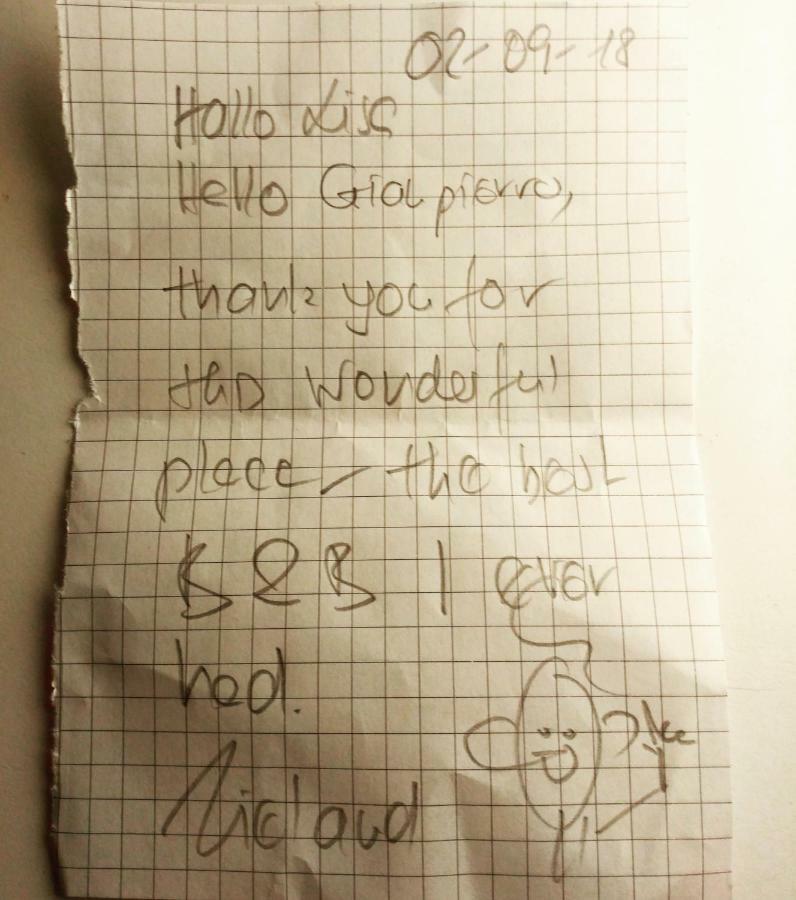 02-09-18
Hallo Lisa
Hello Giapierro,
thank you for
this wonderful
place - the best
B&B I ever
had.